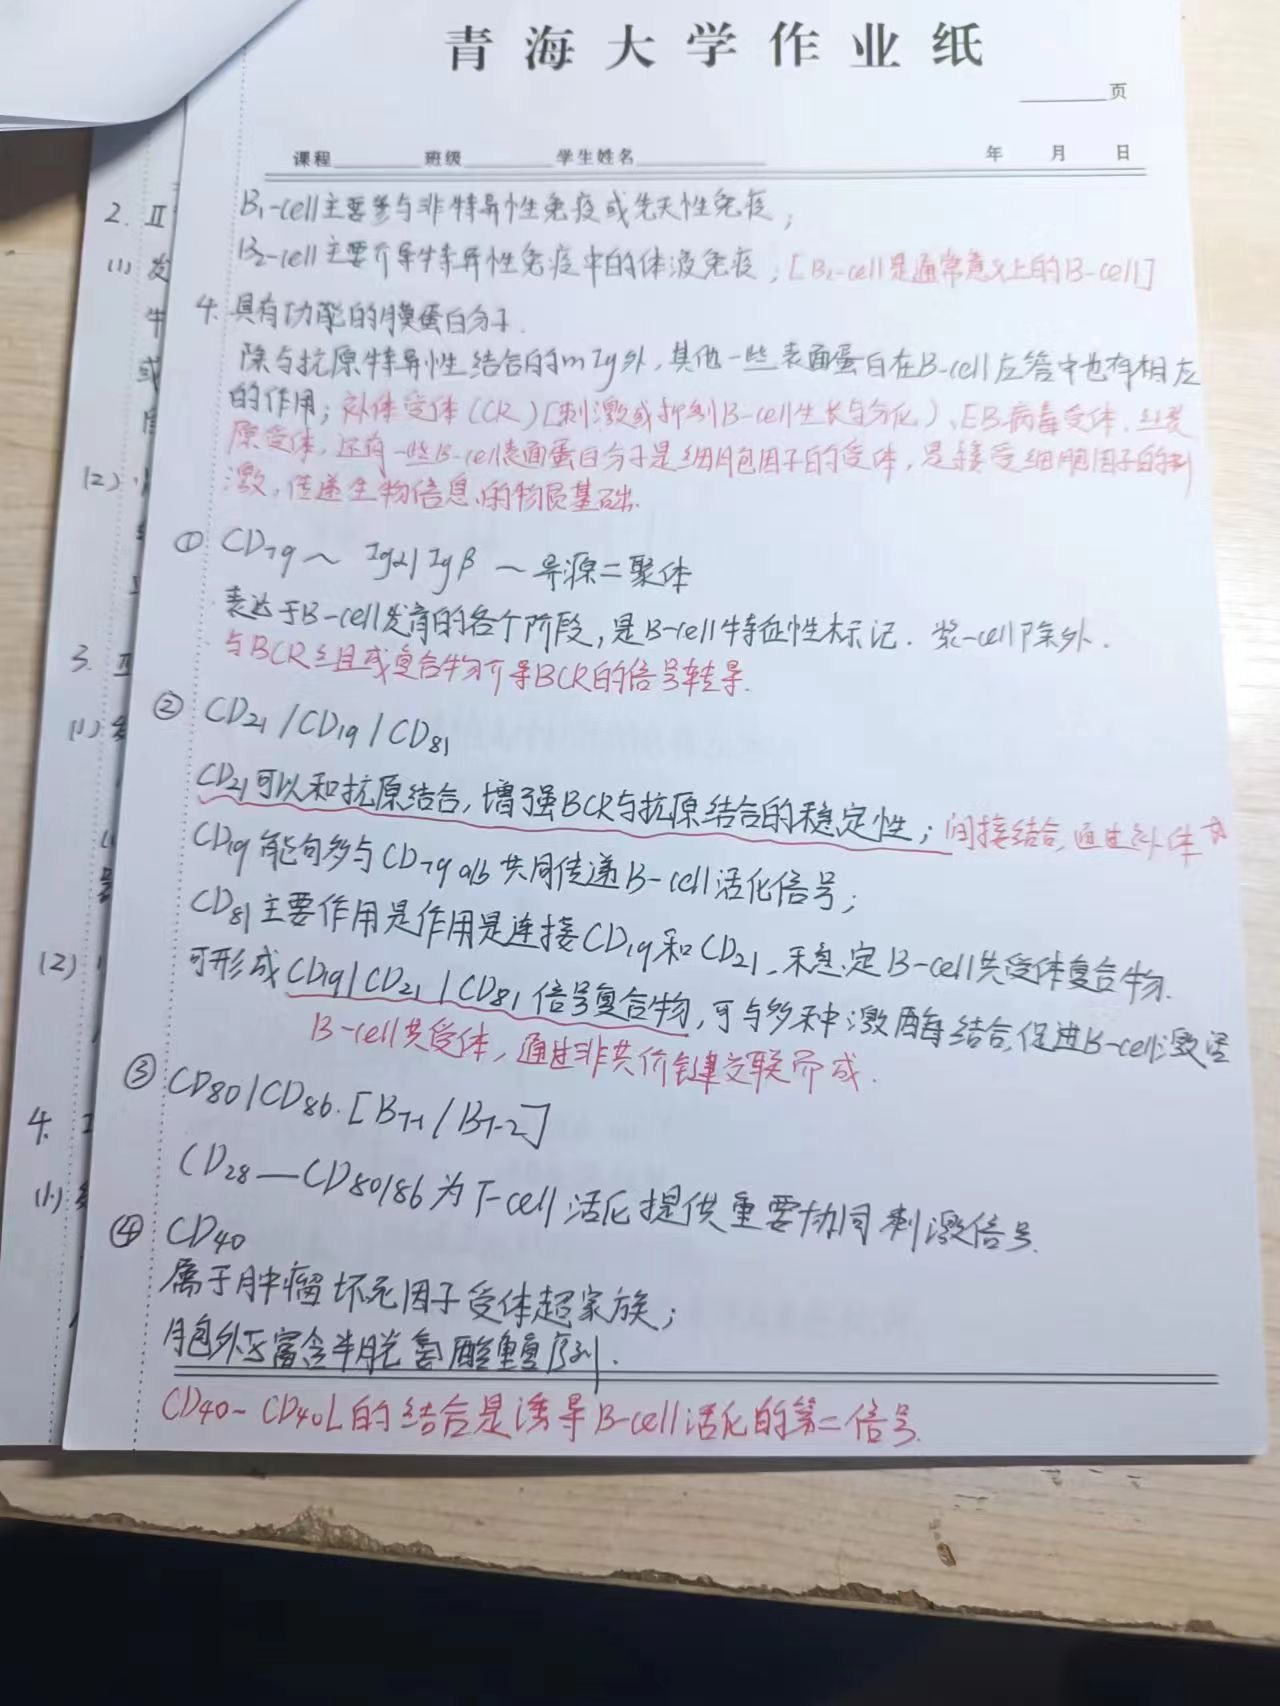 青海大学作业纸
页
课程 班级 学生姓名 年 月 日
B₁-cell主要参与非特异性免疫或先天性免疫；
B₂-cell主要介导特异性免疫中的体液免疫；[B₂-cell是通常意义上的B-cell]
4. 具有功能的膜蛋白分子.
除与抗原特异性结合的mIg外，其他一些表面蛋白在B-cell应答中也有相应
的作用；补体受体(CR)[刺激或抑制B-cell生长与分化)、EB病毒受体、丝裂
原受体，还有一些B-cell表面蛋白分子是细胞因子的受体，是接受细胞因子的刺
激，传递生物信息的物质基础.
① CD79～ Igα/Igβ ～异源二聚体
表达于B-cell发育的各个阶段，是B-cell特征性标记．浆-cell除外．
与BCR组成复合物介导BCR的信号转导.
② CD21/CD19/CD81
CD21可以和抗原结合，增强BCR与抗原结合的稳定性；间接结合，通过补体
CD19能够与CD79a/b共同传递B-cell活化信号；
CD81主要作用是作用是连接CD19和CD21、稳定B-cell共受体复合物.
可形成CD19/CD21/CD81信号复合物，可与多种激酶结合，促进B-cell激活
B-cell共受体，通过非共价键交联而成.
③ CD80/CD86.[B7-1/B7-2]
CD28—CD80/86为T-cell活化提供重要协同刺激信号.
④ CD40
属于肿瘤坏死因子受体超家族；
胞外区富含半胱氨酸重复序列.
CD40～CD40L的结合是诱导B-cell活化的第二信号.
2. Ⅱ
(1) 发
牛
或
(2)
3. Ⅱ
(1)
(2)
4.
(1)